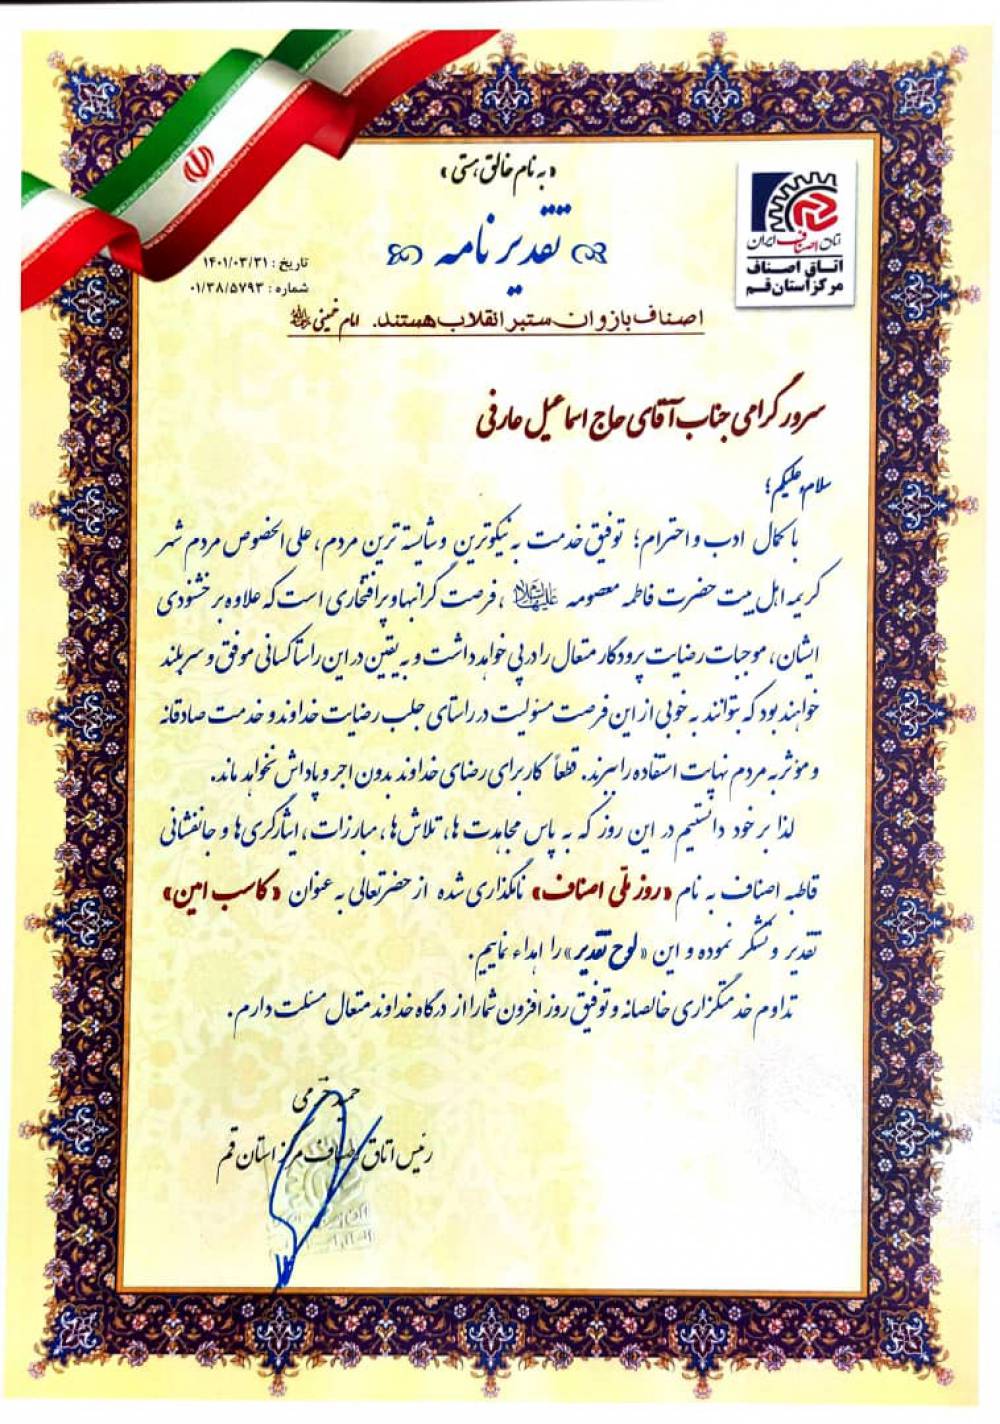 «به نام خالق هستی»
تقدیر نامه
تاریخ : ۱۴۰۱/۰۳/۳۱
شماره : ۰۱/۳۸/۵۷۹۳
اتاق اصناف ایران
اتاق اصناف
مرکز استان قم
اصناف بازوان ستبر انقلاب هستند. امام خمینی
سرور گرامی جناب آقای حاج اسماعیل عارفی
سلام علیکم؛
با کمال ادب و احترام؛ توفیق خدمت به نیکوترین و شایسته ترین مردم، علی الخصوص مردم شهر
کریمه اهل بیت حضرت فاطمه معصومه علیها السلام، فرصت گرانبها و پر افتخاری است که علاوه بر خشنودی
ایشان، موجبات رضایت پرودگار متعال را در پی خواهد داشت و به یقین در این راستا کسانی موفق و سربلند
خواهند بود که بتوانند به خوبی از این فرصت مسئولیت در راستای جلب رضایت خداوند و خدمت صادقانه
و مؤثر به مردم نهایت استفاده را ببرند. قطعاً کار برای رضای خداوند بدون اجر و پاداش نخواهد ماند.
لذا بر خود دانستیم در این روز که به پاس مجاهدت ها، تلاش ها، مبارزات، ایثارگری ها و جانفشانی
قاطبه اصناف به نام «روز ملّی اصناف» نامگذاری شده از حضرتعالی به عنوان «کاسب امین»
تقدیر و تشکر نموده و این «لوح تقدیر» را اهداء نماییم.
تداوم خدمتگزاری خالصانه و توفیق روز افزون شما را از درگاه خداوند متعال مسئلت دارم.
حمید خرمی
رئیس اتاق اصناف مرکز استان قم